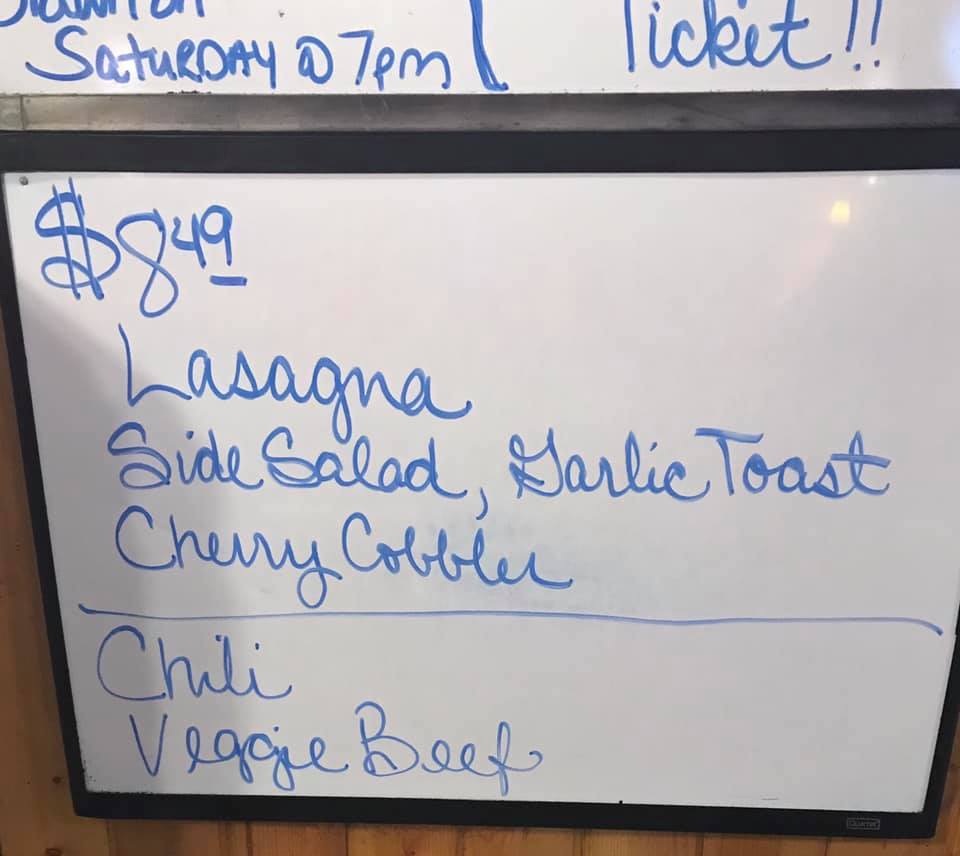 Saturday @ 7pm
Ticket!!
$8.49
Lasagna
Side Salad, Garlic Toast
Cherry Cobbler
Chili
Veggie Beef
Quartet